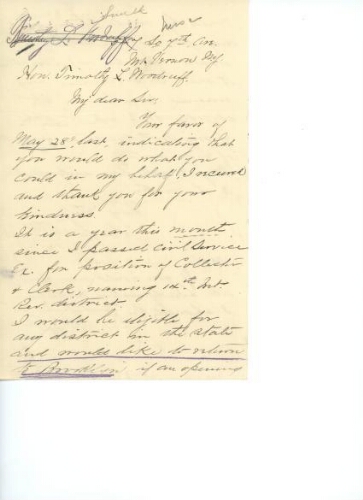 So 7th Ave.
Mt. Vernon NY
Hon. Timothy L. Woodruff.
My dear Sir.
Your favor of
May 28th last, indicating that
you would do what you
could in my behalf, I received
and thank you for your
kindness.
It is a year this month
since I passed Civil Service
Ex. for position of Collector
& Clerk, naming 14th Int
Rev. district
I would be eligible for
any district in the state
and would like to return
to Brooklyn, if an opening